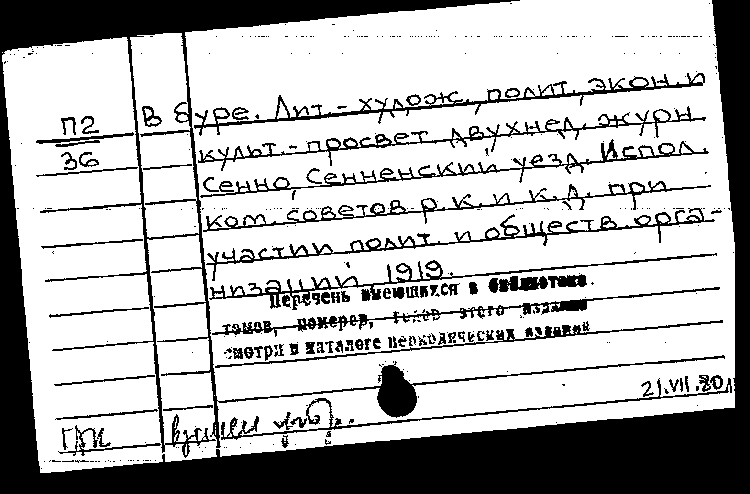 П2
36
В буре. Лит.-худож., полит., экон. и
культ.-просвет. двухнед. журн.
Сенно, Сенненский уезд. Испол.
ком. советов р. к. и к. д. при
участии полит. и обществ. орга-
низаций, 1919.
Перечень имеющихся в библиотеке
томов, номеров, годов этого издания
смотри в каталоге периодических изданий
21.VII.